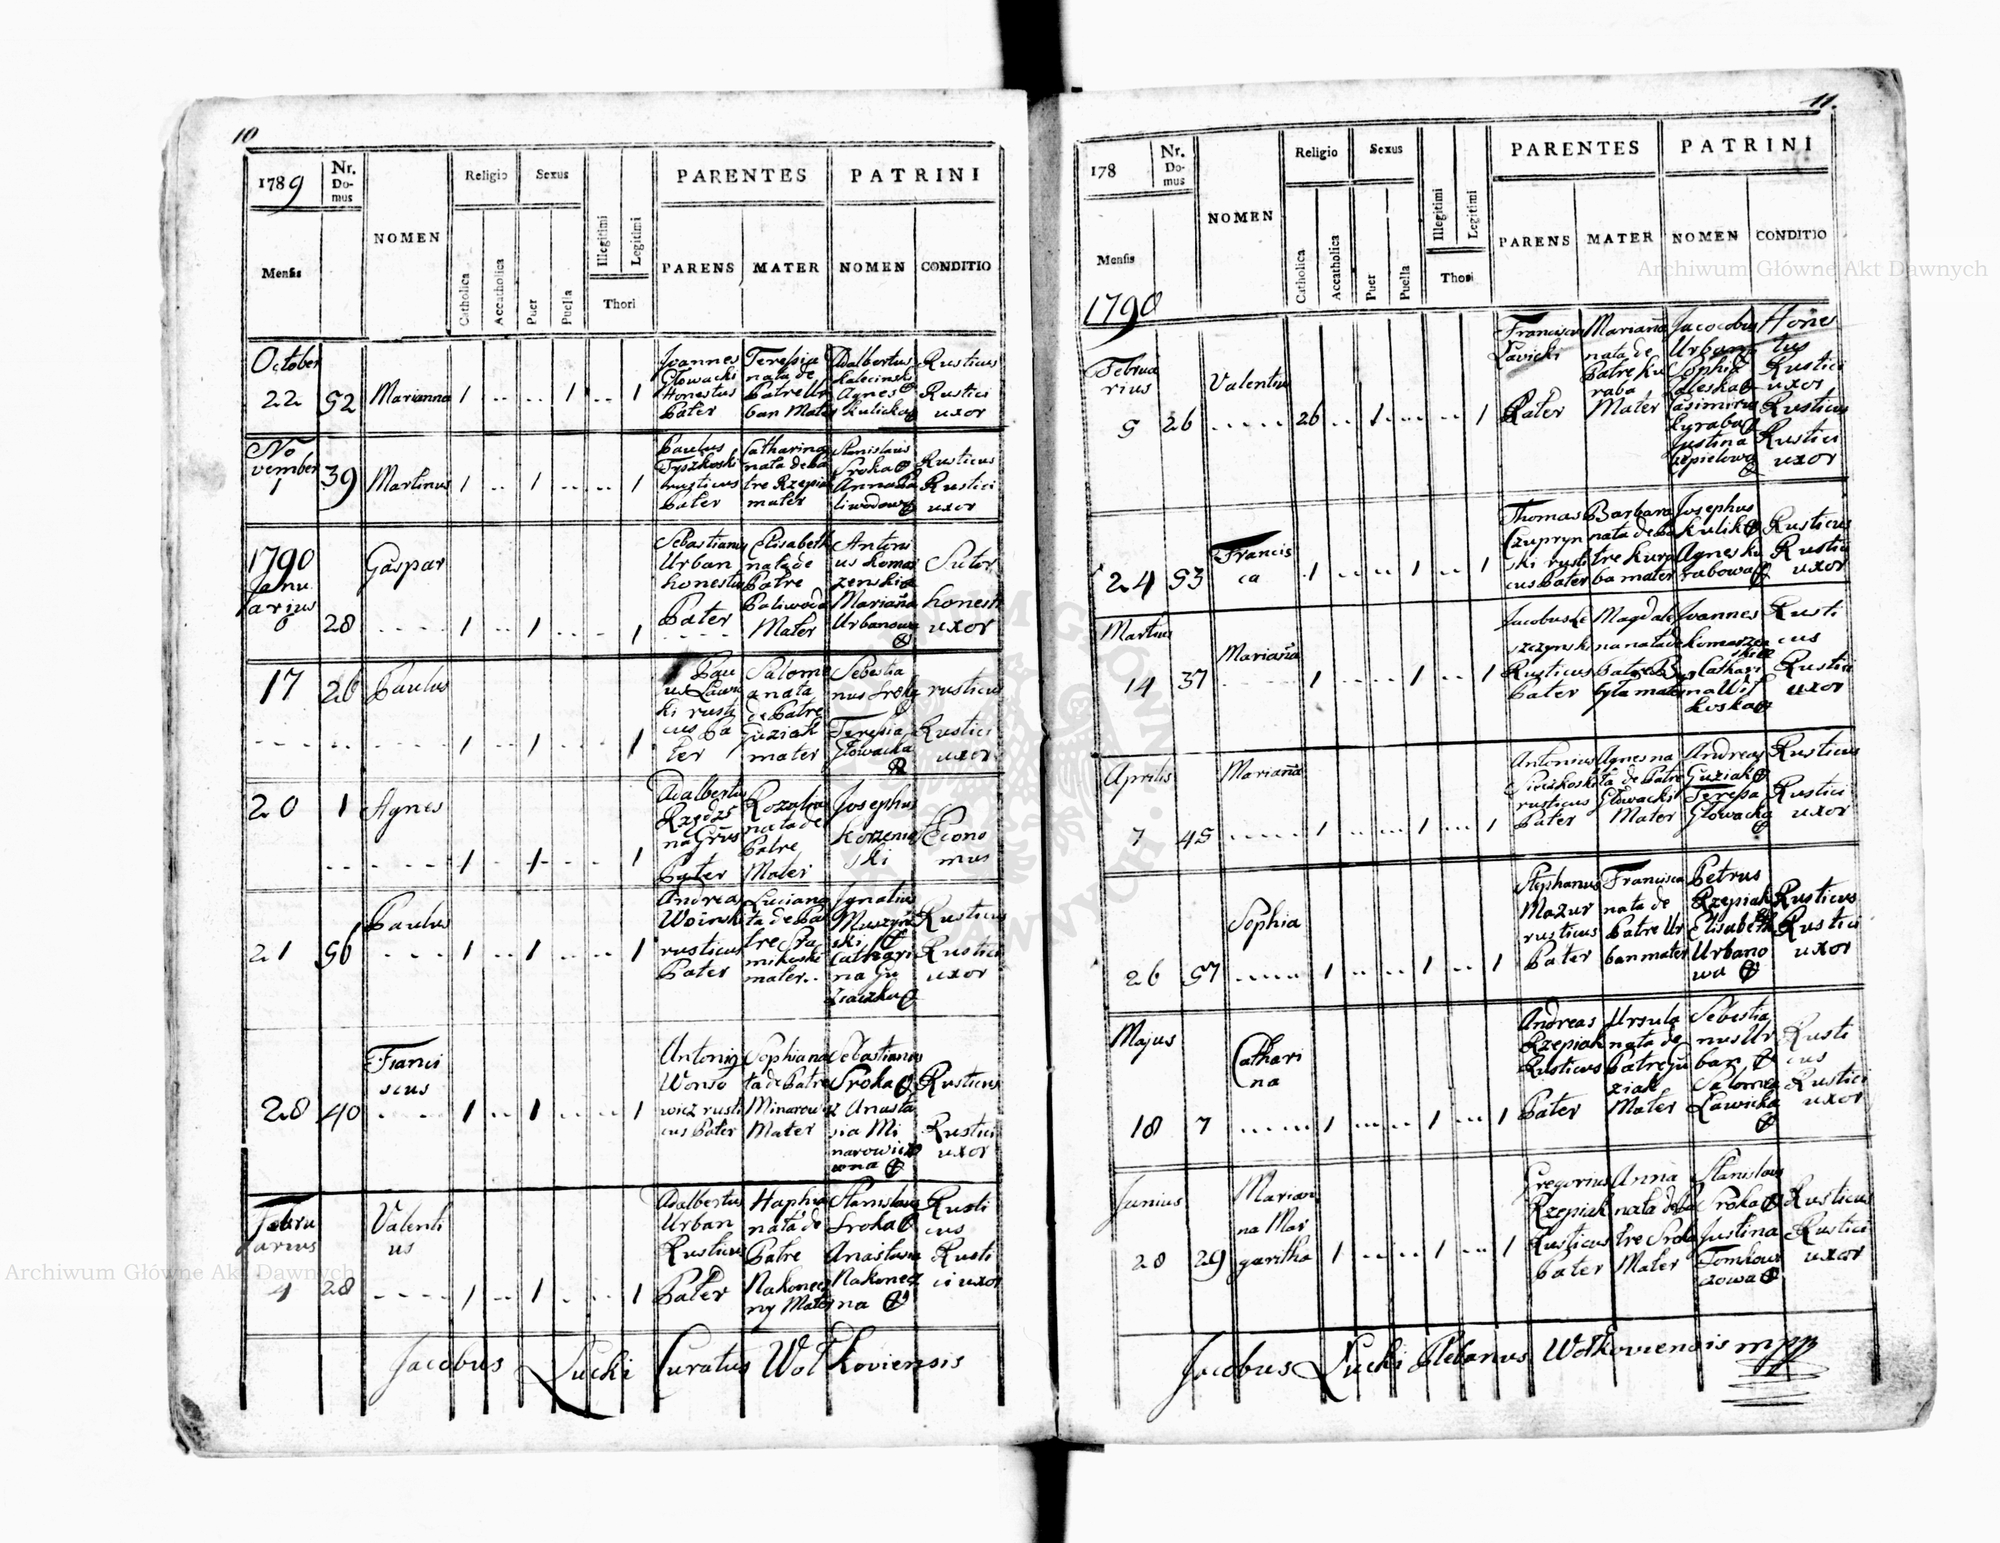 10
1789
Nr. Domus
NOMEN
Religio
Sexus
PARENTES
PATRINI
Mensis
Catholica
Accatholica
Puer
Puella
Illegitimi
Legitimi
Thori
PARENS
MATER
NOMEN
CONDITIO
October
22 52 Marianna 1 .. .. 1 .. 1
Joannes
Głowacki
Honestus
Pater
Teresia
nata de
Patre Ur
ban Mater
Adalbertus
Agnes
Kulicka
Rusticus
Rustici
uxor
No
vember
1 39 Martinus 1 .. 1 .. .. 1
Paulus
Pater
Catharina
nata de Pa
tre Rzepiak
mater
Stanislaus
Sroka
Rusticus
Rustici
uxor
1790
Janu
arius
6 28 Gaspar 1 .. 1 .. .. 1
Sebastianus
Urban
honestus
Pater
Elisabeth
nata de
Patre
Paliwoda
Mater
Antoni
us Komar
zenski
Mariana
Urbanowa
Sutor
honesti
uxor
17 26 Paulus 1 .. 1 .. .. 1
Pau
us Lawic
ki rusti
cus Pa
ter
Salome
a nata
de Patre
Guziak
mater
Sebestia
nus Sroka
Teresia
Głowacka
rusticus
Rustici
uxor
20 1 Agnes 1 .. 1 .. .. 1
Adalbertus
Pater
Rozalia
nata de
Patre
Mater
Josephus
Korzenio
ski
Econo
mus
21 56 Paulus 1 .. 1 .. .. 1
Andreas
Woinski
rusticus
Pater
Luciana
ta de Pa
tre
mater
Ignatius
ski
Cathari
na Gu
ziaczka
Rusticus
Rustici
uxor
28 40 Franci
scus 1 .. 1 .. .. 1
Antonius
Wonso
wicz rusti
cus Pater
Sophia na
ta de Patre
Minarowicz
Mater
Sebastianus
Sroka
Anasta
sia Mi
narowicz
owna
Rusticus
Rustici
uxor
Febru
arius
4 28 Valenti
us 1 .. 1 .. .. 1
Adalbertus
Urban
Rusticus
Pater
nata de
Patre
Nakonecz
ny Mater
Stanislaus
Sroka
Anastasia
Nakonecz
na
Rusti
cus
Rusti
ci uxor
Jacobus Lucki Curatus Wołkoviensis
11.
178
Nr. Domus
NOMEN
Religio
Sexus
PARENTES
PATRINI
Mensis
Catholica
Accatholica
Puer
Puella
Illegitimi
Legitimi
Thori
PARENS
MATER
NOMEN
CONDITIO
1790
Februa
rius
5 26 Valentius 26 .. 1 .. .. 1
Franciscus
Lavicki
Pater
Mariana
nata de
Patre Ku
raba
Mater
Jacobus
Urban
Sophia
Casimirus
Kuraba
Justina
Hones
tus
Rustici
uxor
Rusticus
Rustici
uxor
24 53 Francis
ca 1 .. .. 1 .. 1
Thomas
Czupryn
ski rusti
cus Pater
Barbara
nata de Pa
tre Kura
ba mater
Josephus
Kulik
Agnes Ku
rabowa
Rusticus
Rustici
uxor
Martius
14 37 Mariana 1 .. .. 1 .. 1
Jacobus Le
szczynski
Rusticus
Pater
Magdale
na nata de
Patre By
yła mater
Joannes
Komarzen
ski
Cathari
na Wit
koska
Rusti
cus
Rustici
uxor
Aprilis
7 45 Mariana 1 .. .. 1 .. 1
Antonius
rusticus
Pater
Agnes na
ta de Patre
Głowacki
Mater
Andreas
Guziak
Teresa
Głowacka
Rusticus
Rustici
uxor
26 57 Sophia 1 .. .. 1 .. 1
Stephanus
Mazur
rusticus
Pater
Francisca
nata de
Patre Ur
ban mater
Petrus
Rzepiak
Elisabeth
Urbano
wa
Rusticus
Rustici
uxor
Majus
18 7 Cathari
na 1 .. .. 1 .. 1
Andreas
Rzepiak
Rusticus
Pater
Ursula
nata de
Patre Gu
ziak
Mater
Sebestia
nus Ur
ban
Salomea
Lawicka
Rusti
cus
Rustici
uxor
Junius
28 29 Marian
na Mar
garitha 1 .. .. 1 .. 1
Gregorius
Rzepiak
Rusticus
Pater
Anna
nata de Pa
tre Sroka
Mater
Stanislaus
Sroka
Justina
Tomkow
czowa
Rusticus
Rustici
uxor
Jacobus Lucki Plebanus Wołkoviensis mpp
Archiwum Główne Akt Dawnych
Archiwum Główne Akt Dawnych